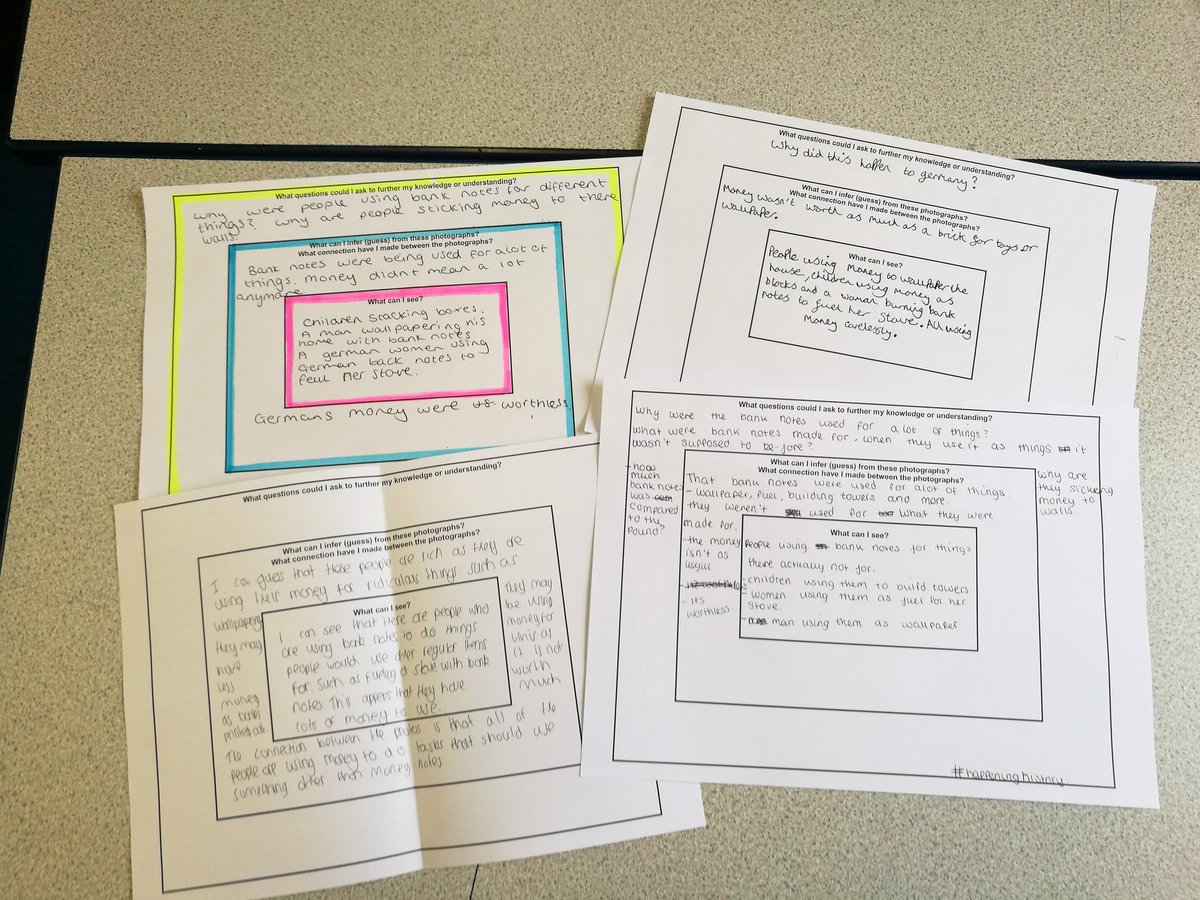 What questions could I ask to further my knowledge or understanding?
Why were people using bank notes for different
things? Why are people sticking money to there
walls.
What can I infer (guess) from these photographs?
What connection have I made between the photographs?
Bank notes were being used for alot of
things. money didnt mean a lot
anymore
What can I see?
Children stacking boxes.
A man wallpapering his
home with bank notes
A german women using
German back notes to
feul her stove.
Germans money were worthless
What questions could I ask to further my knowledge or understanding?
Why did this happen to germany?
What can I infer (guess) from these photographs?
What connection have I made between the photographs?
Money wasn't worth as much as a brick for toys or
wallpaper.
What can I see?
People using money to wallpaper the
house, children using money as
blocks and a woman burning bank
notes to fuel her stove. All using
money carelessly.
What questions could I ask to further my knowledge or understanding?
What can I infer (guess) from these photographs?
What connection have I made between the photographs?
I can guess that these people are rich as they are
using their money for ridiculous things such as
wallpapering
they may
have
less
money
as banks
printed all.
What can I see?
I can see that there are people who
are using bank notes to do things
people would use other regular items
for. Such as fueling a stove with bank
notes. This appers that they have
lots of money to use.
They may
be using
money for
this as
it is not
worth
much
The connection between the photos is that all of the
people are using money to do tasks that should use
something other than money notes
What questions could I ask to further my knowledge or understanding?
Why were the bank notes used for alot of things?
What were bank notes made for, when they use it as things it
wasn't supposed to be-fore?
- how
much
bank notes
was
compared
to the
Pound?
What can I infer (guess) from these photographs?
What connection have I made between the photographs?
That bank notes were used for alot of things.
- wallpaper, fuel, building towers and more.
they weren't used for what they were
made for.
- the money
isn't as
useful
- its
worthless.
What can I see?
People using bank notes for things
there actually not for.
- children using them to build towers
- women using them as fuel for her
stove.
- man using them as wallpaper.
why are
they sticking
money to
walls
#happeninghistory